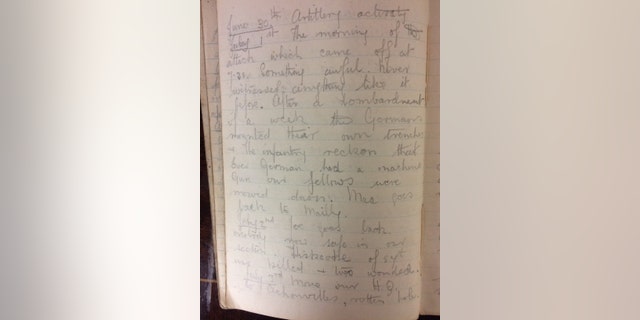 June 30th Artillery activity
July 1 at the morning of the
attack which came off at
7:30. Something awful. Never
witnessed anything like it
before. After a bombardment
of a week the Germans
manned their own trenches
& the infantry reckon that
every German had a machine
Gun our fellows were
mowed down. Mac goes
back to Mailly.
July 2nd Joe goes back
safe in our
section of
killed + two wounded.
move our H.Q.
to